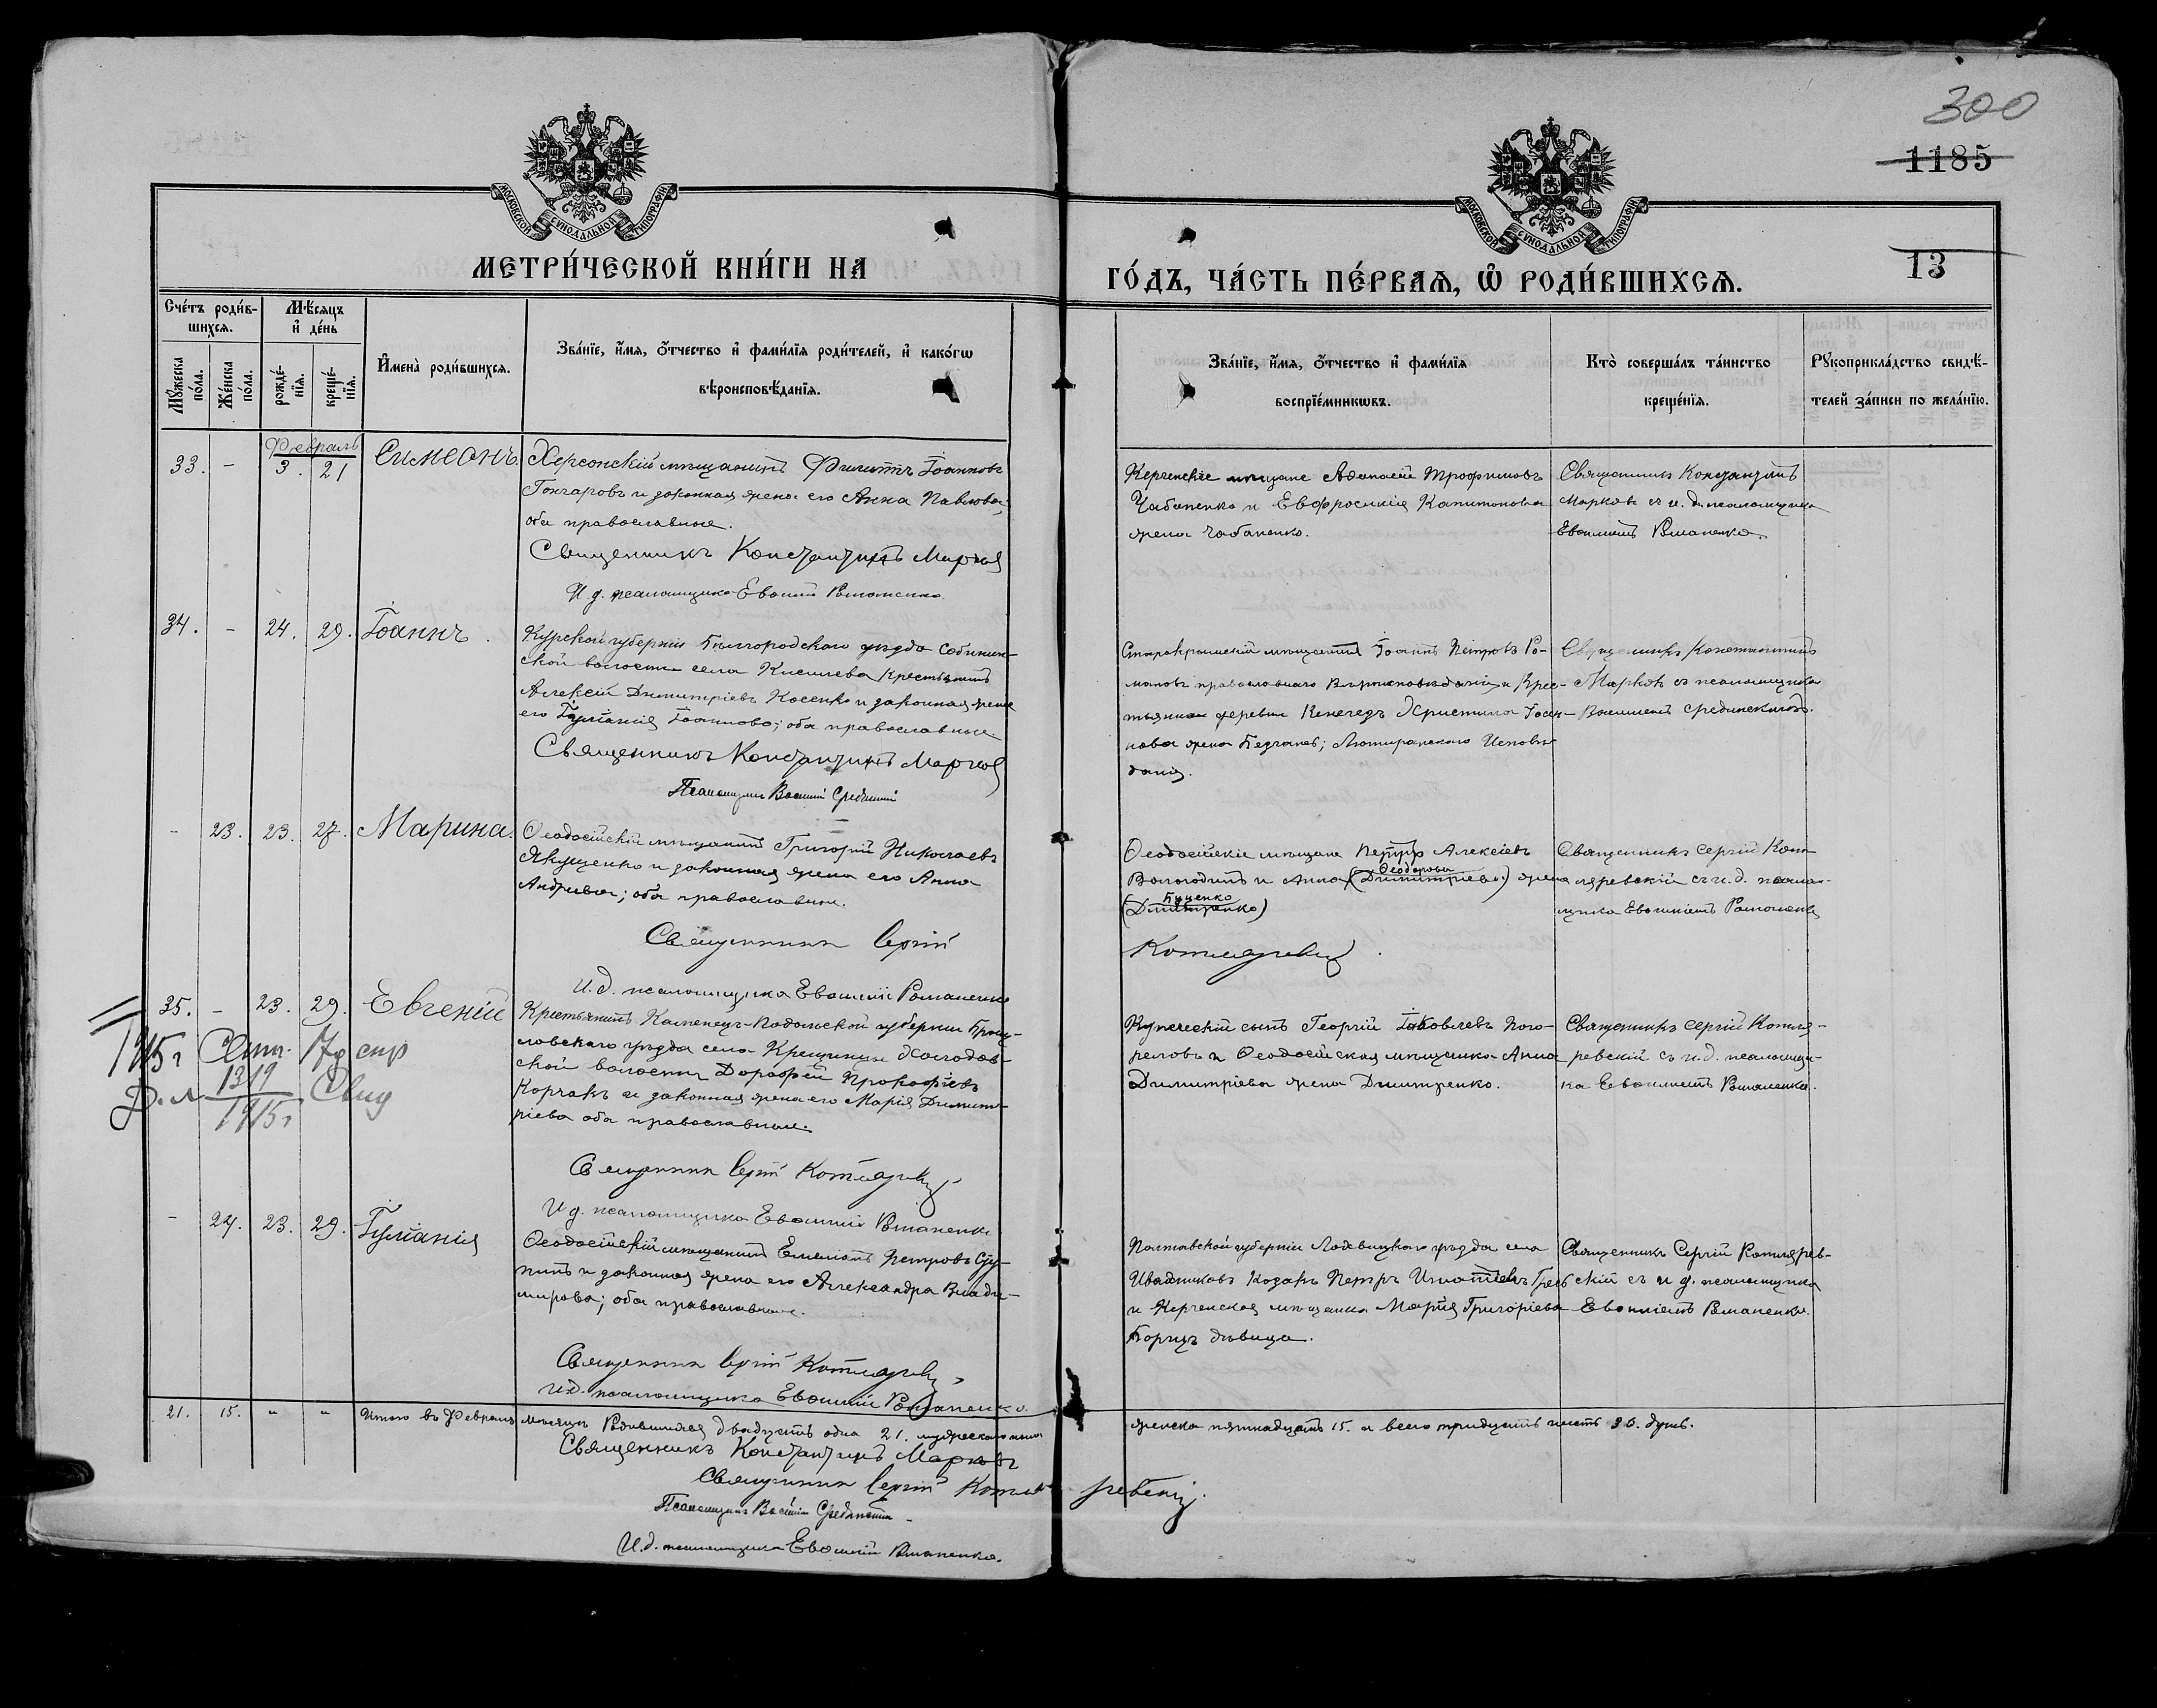 300
1185
13
МОСКОВСКОЙ СУНОДАЛЬНОЙ ТИПОГРАФІИ
МОСКОВСКОЙ СУНОДАЛЬНОЙ ТИПОГРАФІИ
МЕТРИ́ЧЕСКОЙ КНИ́ГИ НА
ГО́ДЪ, ЧА́СТЬ ПЕ́РВАѦ, Ѡ РОДИ́ВШИХСѦ.
Сче́тъ роди́в-
шихсѧ.
Мѣ́сѧцъ
и де́нь
Мꙋ́жеска по́ла.
Же́нска по́ла.
рожде́-
нїѧ.
креще́-
нїѧ.
Имена̀ роди́вшихсѧ.
Зва́нїе, и́мѧ, ѻ́тчество и фами́лїѧ роди́телей, и како́гѡ
вѣроисповѣ́данїѧ.
Зва́нїе, и́мѧ, ѻ́тчество и фами́лїѧ
воспрїе́мникѡвъ.
Кто̀ соверша́лъ та́инство
креще́нїѧ.
Рꙋкоприкла́дство свидѣ́-
телей за́писи по жела́нїю.
Февраль
33. - 3. 21 Симеонъ
Херсонскій мѣщанинъ Филиппъ Іоанновъ
Гончаровъ и законная жена его Анна Павлова;
оба православные.
Священникъ Константинъ Марковъ
И. д. псаломщика Евѳимій Романенко
Керченскіе мѣщане Аѳанасій Трофимовъ
Чабаненко и Евфросинія Капитонова
жена Чабаненко.
Священникъ Константинъ
Марковъ съ и. д. псаломщика
Евѳиміемъ Романенко.
34. - 24. 29. Іоаннъ.
Курской губерніи Бѣлгородскаго уѣзда
ской волости села Киселева Крестьянинъ
Алексѣй Димитріевъ Косенко и законная жена
его Іуліанія Іоаннова; оба православные.
Священникъ Константинъ Марковъ
Псаломщикъ Василій Срединскій
Старокрымскій мѣщанинъ Іоаннъ Петровъ Ро-
мановъ православнаго Вѣроисповѣданія и Крес-
тьянка деревни Кенегезъ Христина
жена; Лютеранскаго Исповѣ-
данія.
Священникъ Константинъ
Марковъ съ псаломщикомъ
Василіемъ Срединскимъ.
- 23. 23. 27. Марина.
Ѳеодосійскій мѣщанинъ Григорій Николаевъ
Якущенко и законная жена его Анна
Андреева; оба православные.
Священникъ Сергій
Котляревскій
И. д. псаломщика Евѳимій Романенко
Ѳеодосійскіе мѣщане Петръ Алексіевъ
Вологодинъ и Анна (Димитріева) Ѳеодорова жена
(Дмитренко) Буценко
Священникъ Сергій Кот-
ляревскій съ и. д. псалом-
щика Евѳиміемъ Романенко
35. - 23. 29. Евгеній
Крестьянинъ Каменецъ-Подольской губерніи
ловскаго уѣзда села
ской волости Дороѳей Прокофіевъ
Корчакъ и законная жена его Марія Димит-
ріева оба православные.
Священникъ Сергій Котляревскій
И д. псаломщика Евѳимій Романенко
Купеческій сынъ Георгій Іаковлевъ Пого-
реловъ и Ѳеодосійская мѣщанка Анна
Димитріева жена Дмитренко.
Священникъ Сергій Котля-
ревскій съ и. д. псаломщи-
ка Евѳиміемъ Романенко.
1915г
1319
1915г
- 24. 23. 29. Іуліанія
Ѳеодосійскій мѣщанинъ Емеліанъ Петровъ
и законная жена его Александра Влади-
мирова; оба православные.
Священникъ Сергій Котляревскій
и.д. псаломщика Евѳимій Романенко.
Полтавской губерніи уѣзда села
Козакъ Петръ Игнатіевъ
и Керченская мѣщанка Марія Григоріева
дѣвица.
Священникъ Сергій Котлярев-
скій съ и д. псаломщика
Евѳиміемъ Романенко.
21. 15. " " Итого въ Февралѣ мѣсяцѣ Родившихся двадцать одна 21. мужескаго пола
женска пятнадцать 15. и всего тридцать шесть 36. душъ.
Священникъ Константинъ Марковъ
Священникъ Сергій Котляревскій.
Псаломщикъ Василій Срединскій
И.д. псаломщика Евѳимій Романенко.